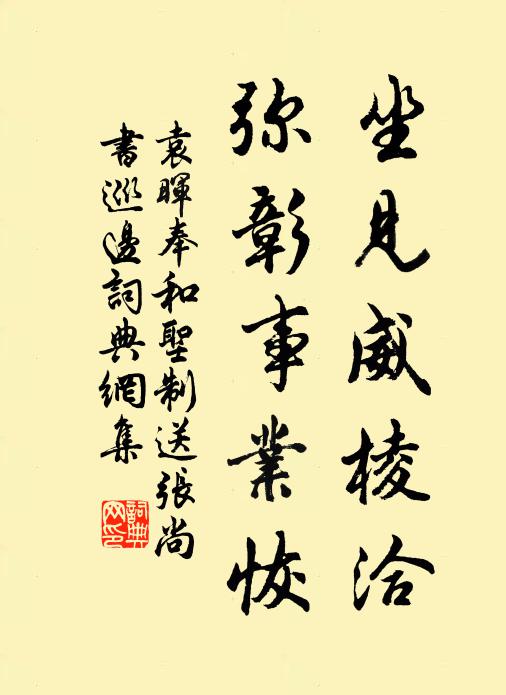 坐見威棱洽
弥彰事業恢
袁暉奉和聖制送張尚
書巡邊詞典網集
詞典网印